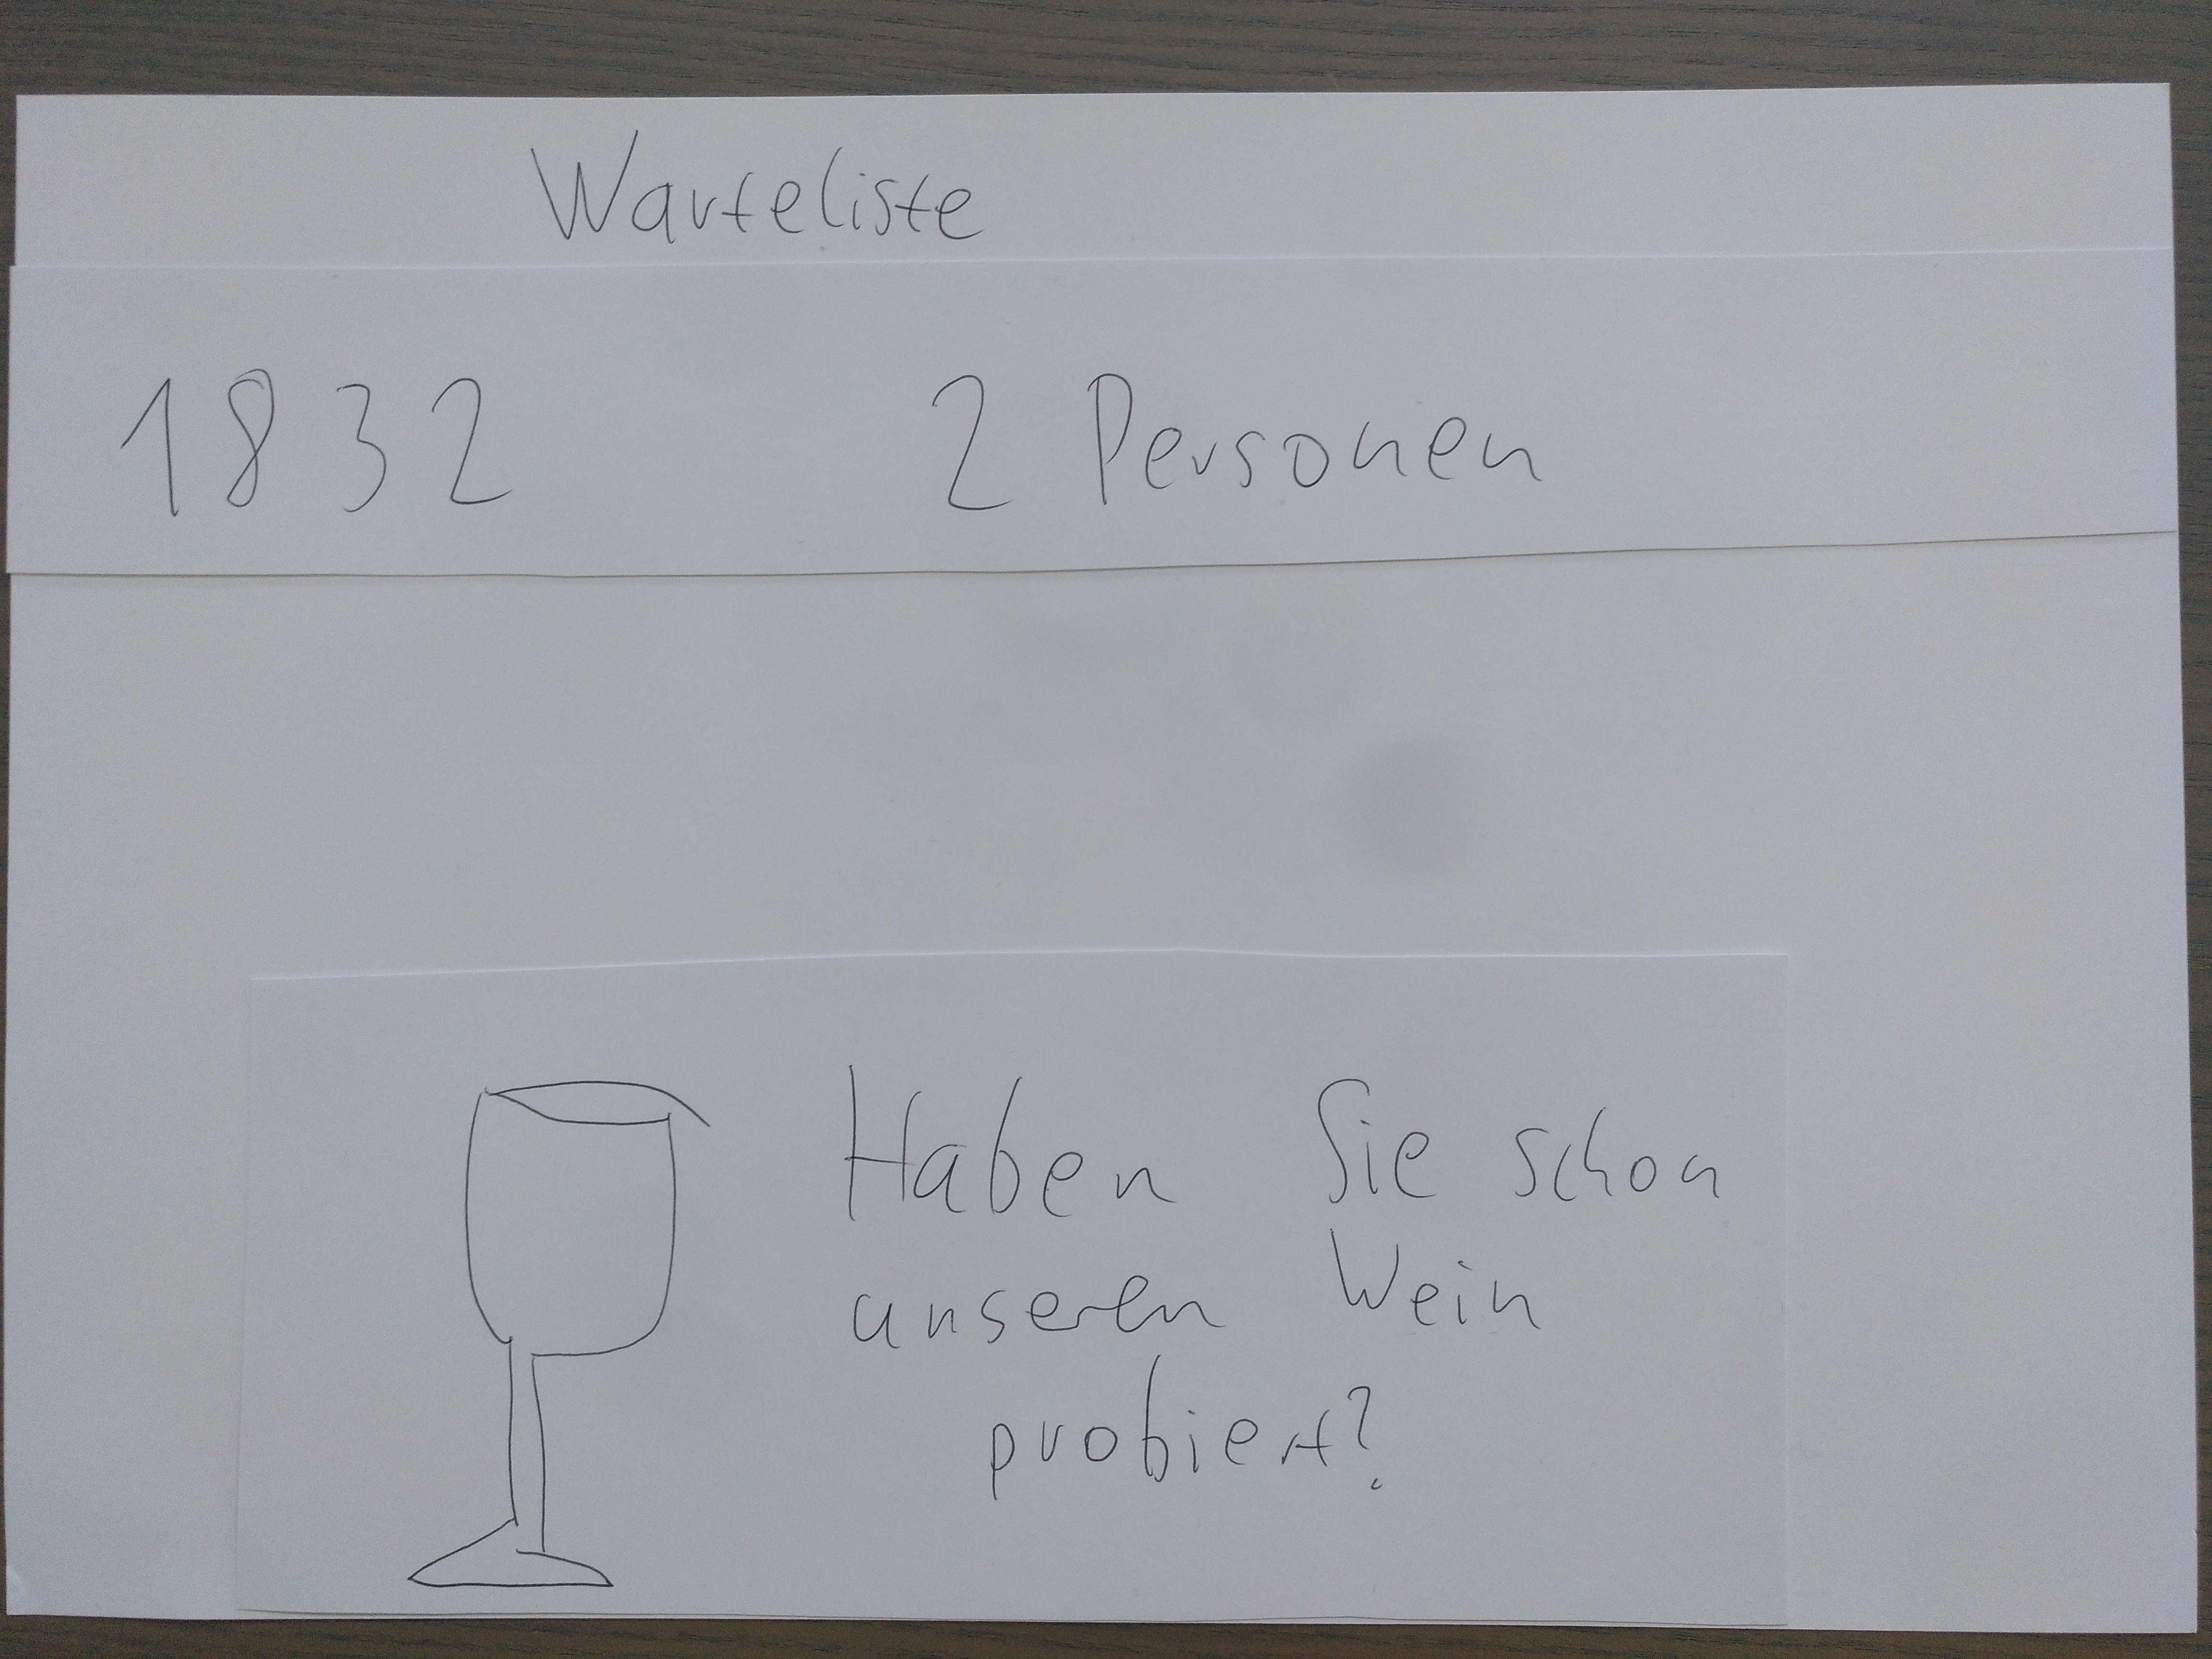 Warteliste
1832 2 Personen
Haben Sie schon
unseren Wein
probiert?